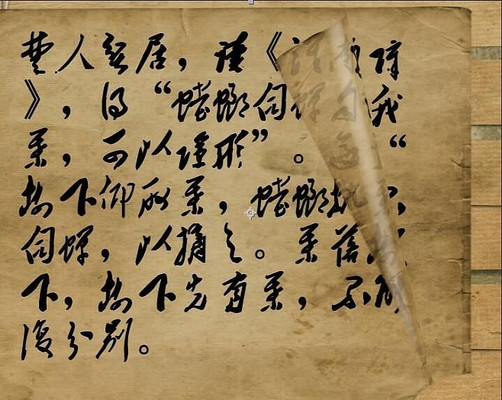 楚人贫居，读《南
》，得“螳螂伺蝉自
叶，可以隐形”。“
树下仰取叶，螳螂执，
伺蝉，以摘之。叶落
下，树下先有叶，不能
复分别。